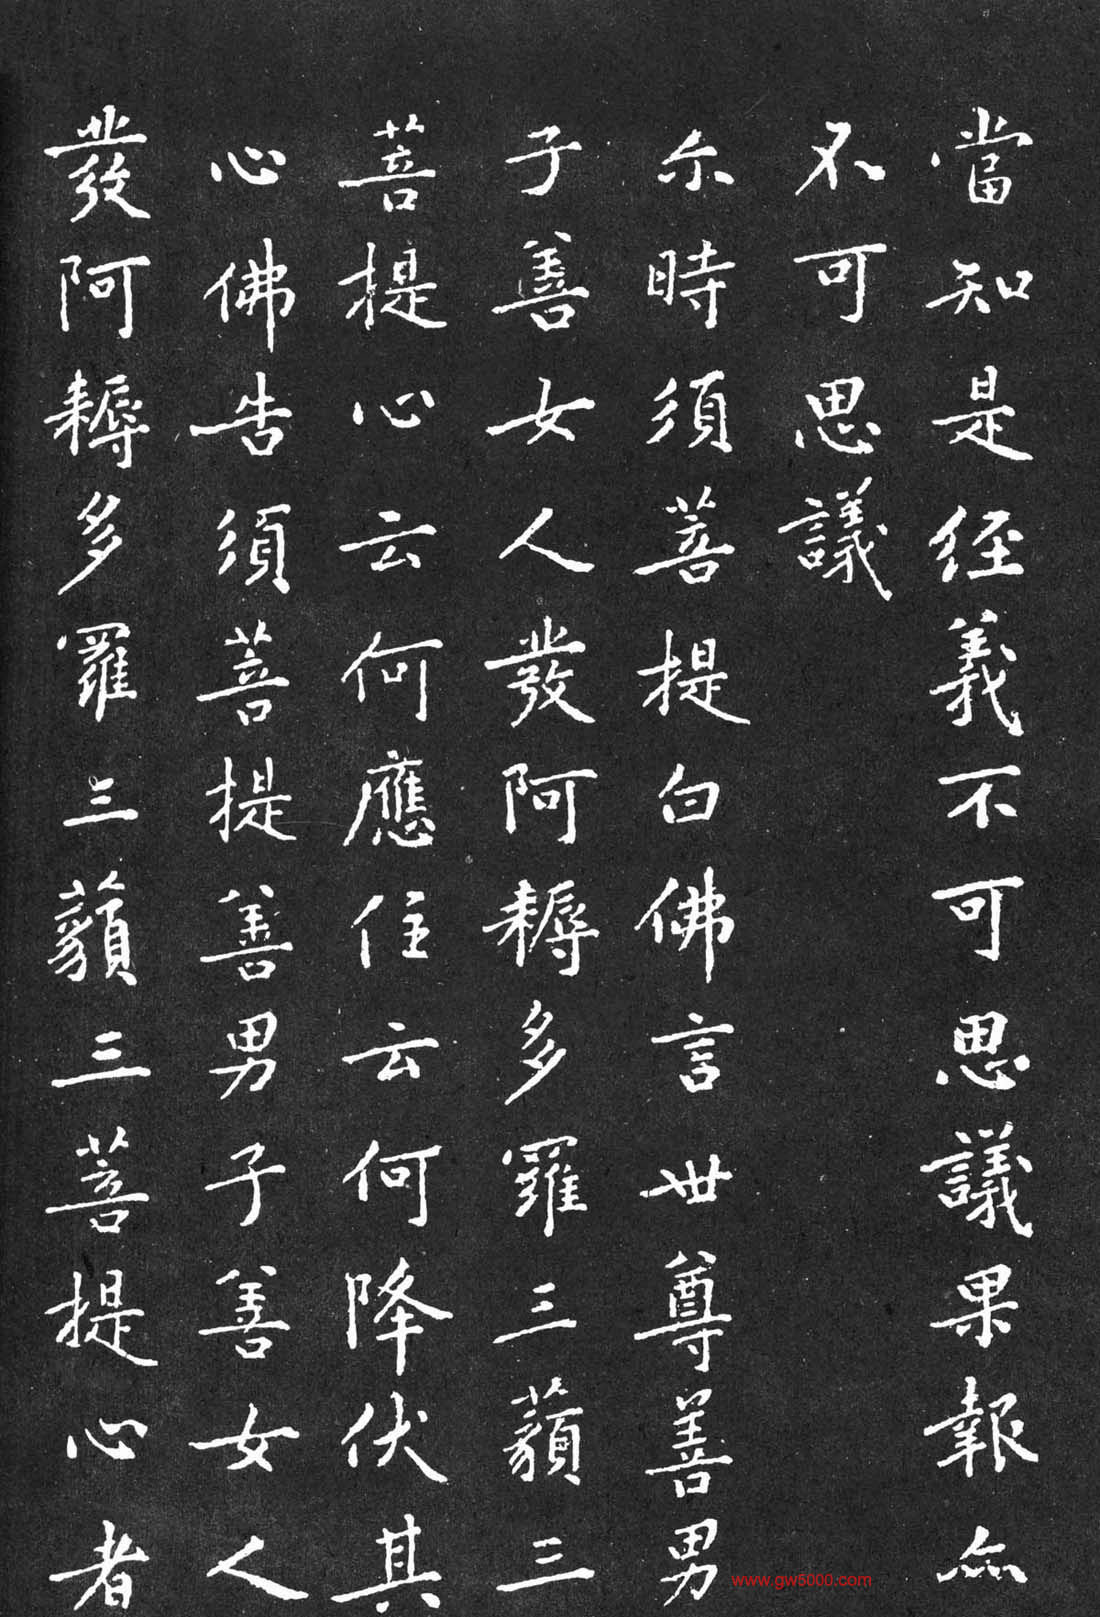 當知是経義不可思議果報亦
不可思議
尒時須菩提白佛言世尊善男
子善女人發阿耨多羅三藐三
菩提心云何應住云何降伏其
心佛告須菩提善男子善女人
發阿耨多羅三藐三菩提心者
www.gw5000.com